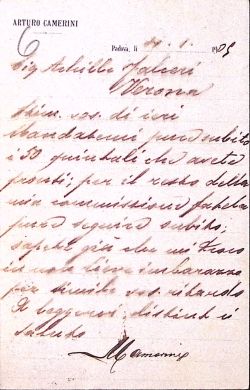 ARTURO CAMERINI
6
Padova, li 17. 1. 1905
Sig Achille Falceri
Verona
Stim. vos. di ieri
Mandatemi pure subito
i 50 quintali che avete
pronti; per il resto della
mia commissione fatela
pure seguire subito;
sapete già che mi trovo
in non lieve imbarazzo
per simile vos. ritardo
A leggervi, distinti
saluti